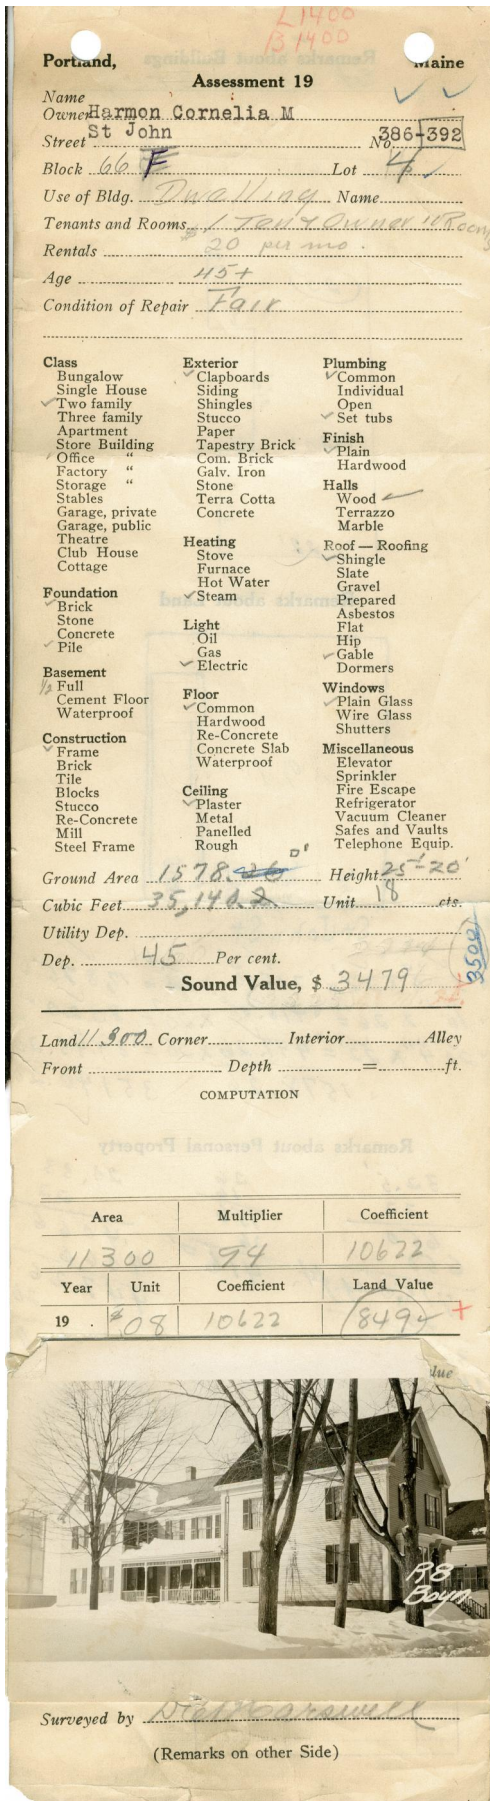 L 1400
B 1400
Portland, Maine
Assessment 19
Name
Owner Harmon Cornelia M
Street St John No. 386-392
Block 66 F Lot 4
Use of Bldg. Dwelling Name
Tenants and Rooms 1 Ten & Owner 10 Rooms
Rentals $20 per mo.
Age 45+
Condition of Repair Fair
Class
Bungalow
Single House
Two family
Three family
Apartment
Store Building
Office "
Factory "
Storage "
Stables
Garage, private
Garage, public
Theatre
Club House
Cottage
Foundation
Brick
Stone
Concrete
Pile
Basement
1/2 Full
Cement Floor
Waterproof
Construction
Frame
Brick
Tile
Blocks
Stucco
Re-Concrete
Mill
Steel Frame
Exterior
Clapboards
Siding
Shingles
Stucco
Paper
Tapestry Brick
Com. Brick
Galv. Iron
Stone
Terra Cotta
Concrete
Heating
Stove
Furnace
Hot Water
Steam
Light
Oil
Gas
Electric
Floor
Common
Hardwood
Re-Concrete
Concrete Slab
Waterproof
Ceiling
Plaster
Metal
Panelled
Rough
Plumbing
Common
Individual
Open
Set tubs
Finish
Plain
Hardwood
Halls
Wood
Terrazzo
Marble
Roof — Roofing
Shingle
Slate
Gravel
Prepared
Asbestos
Flat
Hip
Gable
Dormers
Windows
Plain Glass
Wire Glass
Shutters
Miscellaneous
Elevator
Sprinkler
Fire Escape
Refrigerator
Vacuum Cleaner
Safes and Vaults
Telephone Equip.
Ground Area 1578. □' Height 25'-20'
Cubic Feet 35,140.2 Unit 18 cts.
Utility Dep.
Dep. 45 Per cent. 3500
Sound Value, $ 3479
Land 11300 Corner Interior Alley
Front Depth = ft.
COMPUTATION
Area Multiplier Coefficient
11300 94 10622
Year Unit Coefficient Land Value
19 . $.08 10622 849
lue
R8
Boyn
Surveyed by
(Remarks on other Side)